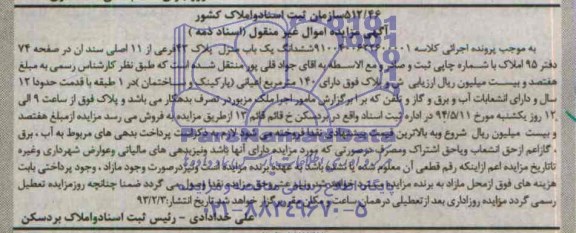 ۵۱۲/۴۶سازمان ثبت اسنادواملاک کشور
آگهی مزایده اموال غیر منقول (اسناد ذمه)
به موجب پرونده اجرائی کلاسه ششدانگ یک باب منزل پلاک ۴۳فرعی از ۱۱ اصلی سند ان در صفحه ۷۴
دفتر ۹۵ املاک با شماره چاپی ثبت و صادر و مع الاسطه به اقای جواد قلی پور منتقل شده است که طبق نظر کارشناس رسمی به مبلغ
هفتصد و بیست میلیون ریال ارزیابی شد و پلاک فوق دارای ۱۴۰ متر مربع اعیانی (پارکینگ و ساختمان) در ۱ طبقه با قدمت حدودا ۱۲
سال و دارای انشعابات آب و برق و گاز و تلفن که برابر گزارش مامور اجرا ملک مزبور در تصرف بدهکار می باشد و پلاک فوق از ساعت ۹ الی
۱۲ روز یکشنبه مورخ ۹۴/۵/۱۱ در اداره ثبت اسناد واقع در بردسکن خ قائم قائم ۱۲ ازطریق مزایده به فروش می رسد مزایده ازمبلغ هفتصد
و بیست میلیون ریال شروع وبه بالاترین قیمت پیشنهادی نقدا فروخته می شود لازم به ذکراست پرداخت بدهی های مربوط به آب ، برق
، گازاعم ازحق انشعاب ویاحق اشتراک ومصرف درصورتی که مورد مزایده دارای آنها باشد ونیزبدهی های مالیاتی وعوارض شهرداری وغیره
تاتاریخ مزایده اعم ازاینکه رقم قطعی آن معلوم شده یا نشده باشد به عهده برنده مزایده است ونیزدرصورت وجود مازاد ، وجود پرداختی بابت
هزینه های فوق ازمحل مازاد به برنده مزایده مسترد خواهد شد ونیم عشر وحق مزایده نقدا وصول می گردد ضمنا چنانچه روزمزایده تعطیل
رسمی گردد مزایده روزاداری بعد ازتعطیلی درهمان ساعت و مکان مقرر برگزار خواهد شد تاریخ انتشار:۹۴/۲/۳
علی خدادادی - رئیس ثبت اسنادواملاک بردسکن
۰۲۱-۸۸۳۴۹۶۷۰-۵